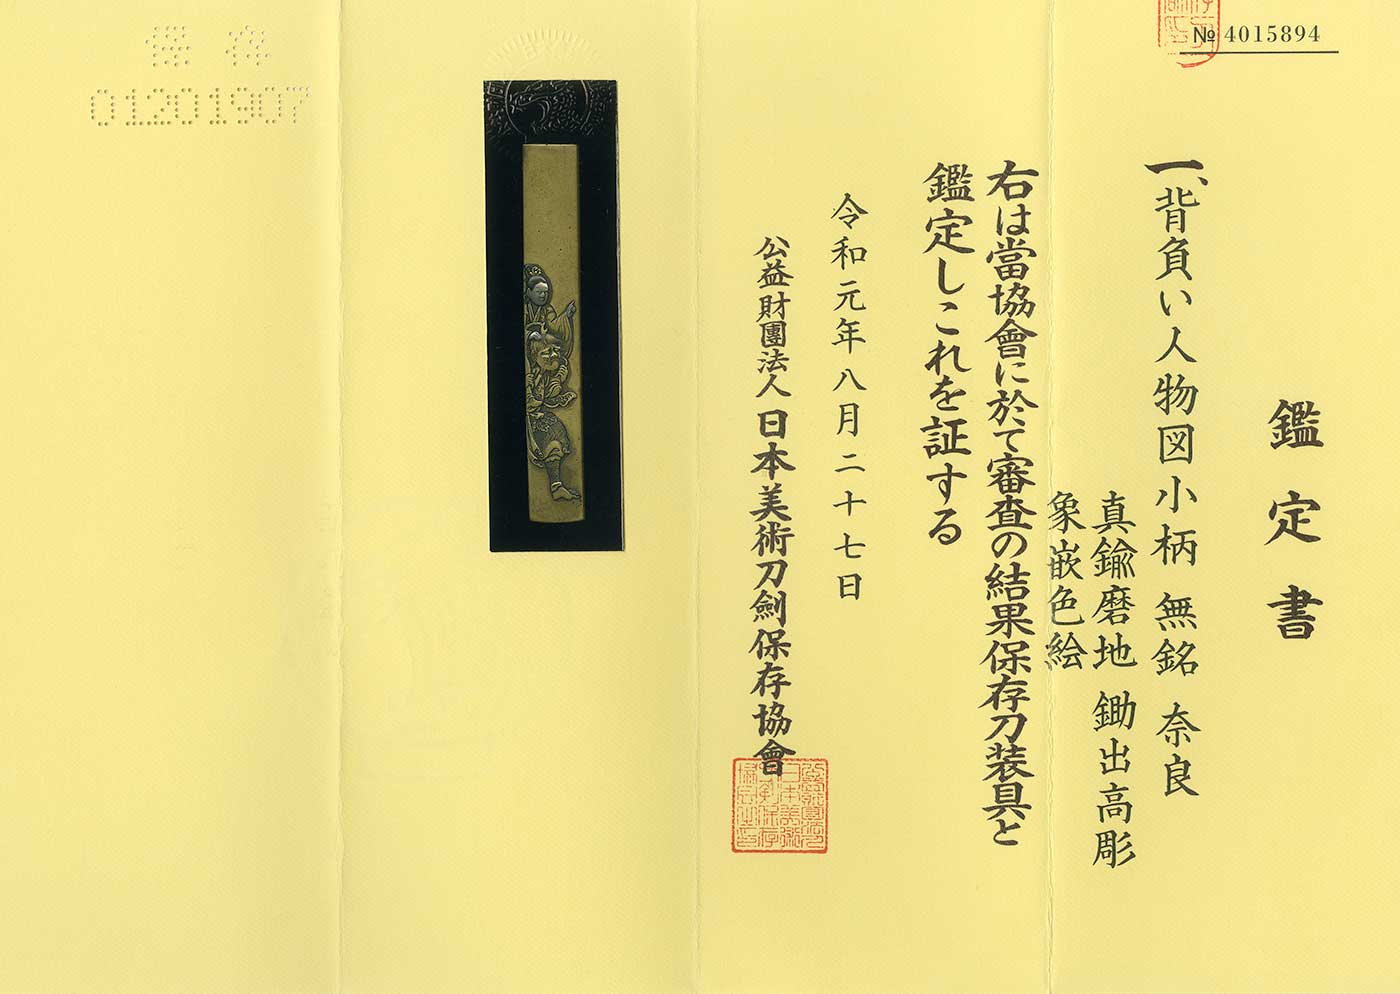 № 4015894
鑑定書
一、背負い人物図小柄 無銘 奈良
真鍮磨地 鋤出高彫
象嵌色絵
右は當協會に於て審査の結果保存刀装具と
鑑定しこれを証する
令和元年八月二十七日
公益財團法人 日本美術刀劍保存協會
保存
01201907